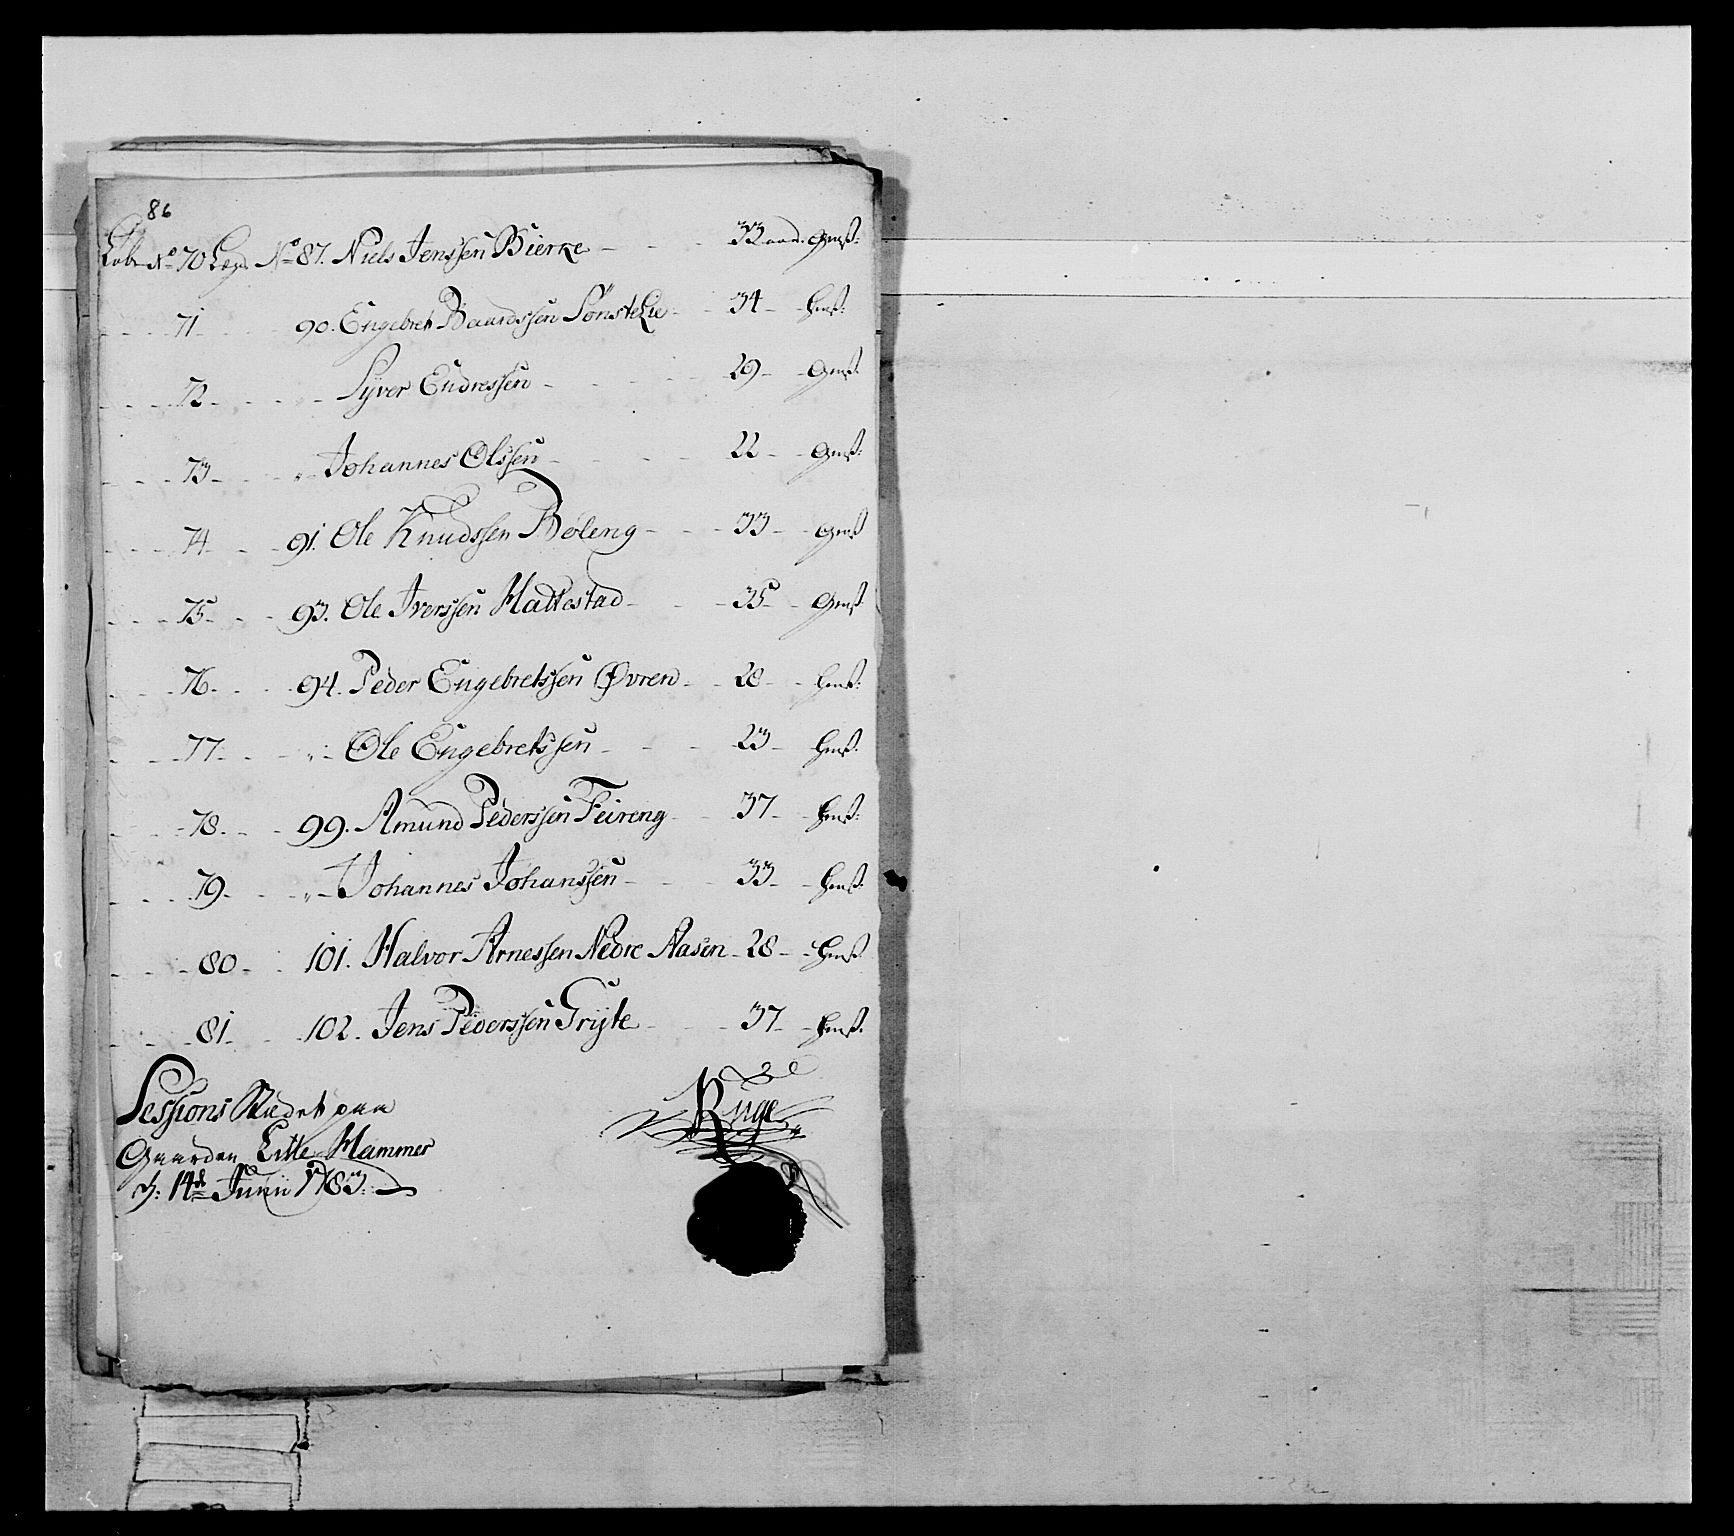 86
Løb No 70 Læg No 87. Niels Jenssen Bierke - - - 32 aar. Gmß:
- - - 71 - - - 90. Engebret Baardssen Sønste Lie - - 34 - - hmß:
- - - 72 - - - „ - Syver Endressen - - - 29 - - Gmß:
- - - 73 - - - „ - Johannes Olssen - - - 22 - - Gmß:
- - - 74 - - - 91. Ole Knudssen Bøleng - - - 33 - - Gmß
- - - 75 - - - 93. Ole Iverssen Hallestad - - - 35 - - Gmß
- - - 76 - - - 94. Peder Engebretssen Øvren - - 28 - - hmß:
- - - 77 - - - „ - Ole Engebretssen - - - 23 - - hmß:
- - - 78 - - - 99. Amund Pederssen Feireng - - 37 - - hmß:
- - - 79 - - - „ - Johannes Johanssen - - - 33 - - hmß:
- - - 80 - - 101. Halvor Arnessen Nedre Aasen - 28 - - hmß:
- - - 81 - - 102. Jens Pederssen Gryte - - - 37 - - hmß.
Sessions Stædet paa
Gaarden Litle Hammer
d: 14de Junii 1783.
Ruge